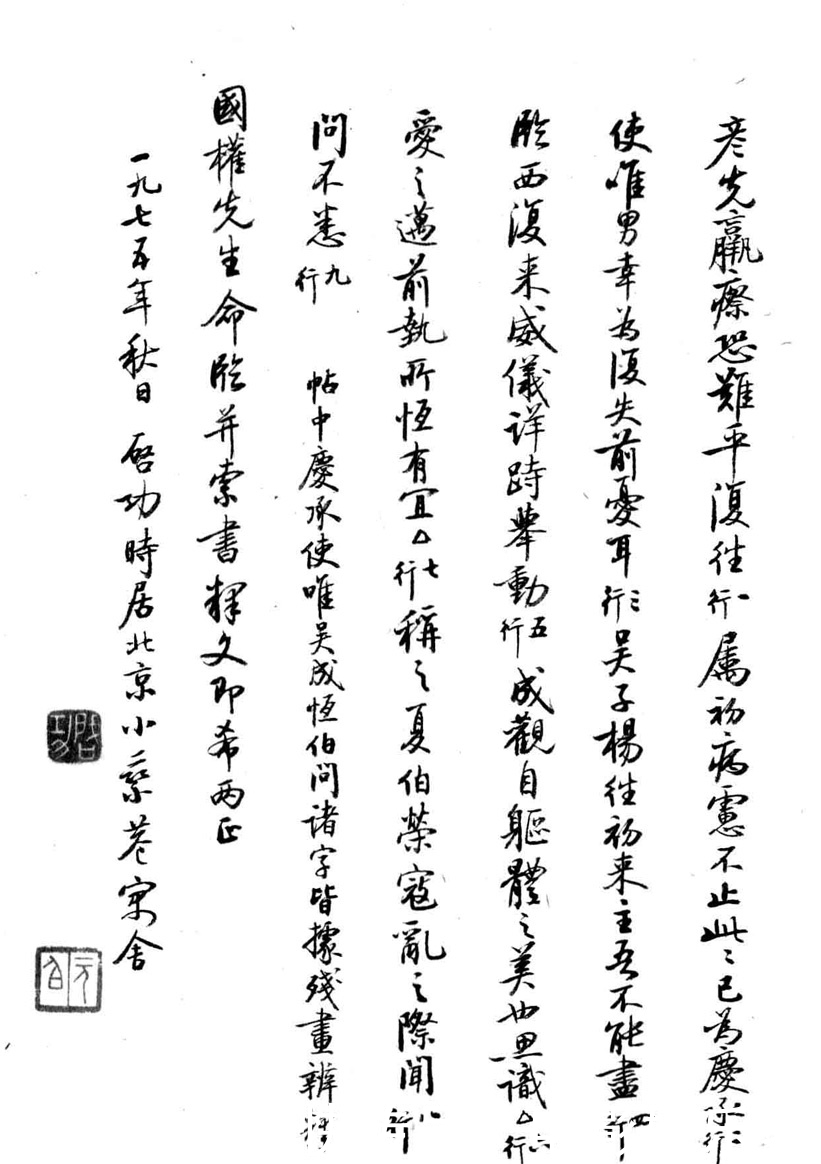 彦先羸瘵恐難平復往一行属初病慮不止此〻已為慶承二行
使唯男幸為復失前憂耳三行吴子楊往初来主吾不能盡四行
臨西復来威儀詳跱舉動五行成觀自軀體之美也思識△六行
愛之邁前執所恆有宜△七行稱之夏伯榮寇亂之際聞八行
問不悉九行 帖中慶承使唯吴成恆伯問諸字皆據殘畫辨
國權先生命臨并索書釋文即希兩正
一九七五年秋日 启功時居北京小乘巷寓舍
啓功
元白